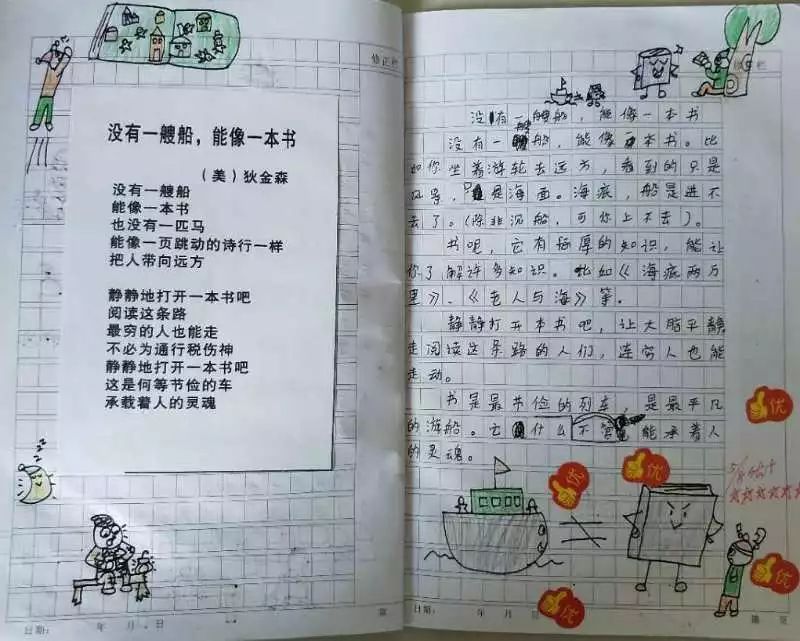 修正栏
没有一艘船，能像一本书
（美）狄金森
没有一艘船
能像一本书
也没有一匹马
能像一页跳动的诗行一样
把人带向远方
静静地打开一本书吧
阅读这条路
最穷的人也能走
不必为通行税伤神
静静地打开一本书吧
这是何等节俭的车
承载着人的灵魂
日期： 年 月 日 第
没有一艘船，能像一本书
没有一艘船，能像一本书。比
如你坐着游轮去远方，看到的只是
风景，只是海面。海底，船是进不
去了。（除非沉船，可你上不去）。
书呢，它有极厚的知识，能让
你了解许多知识。比如《海底两万
里》、《老人与海》等。
静静打开本书吧，让大脑平静
走阅读这条路的人们，连穷人也能
走动。
书是最节俭的列车，是最平凡
的游船。它什么不管能承着人
的灵魂。
优
优
优
优
优
日期： 年 月 日 第 页